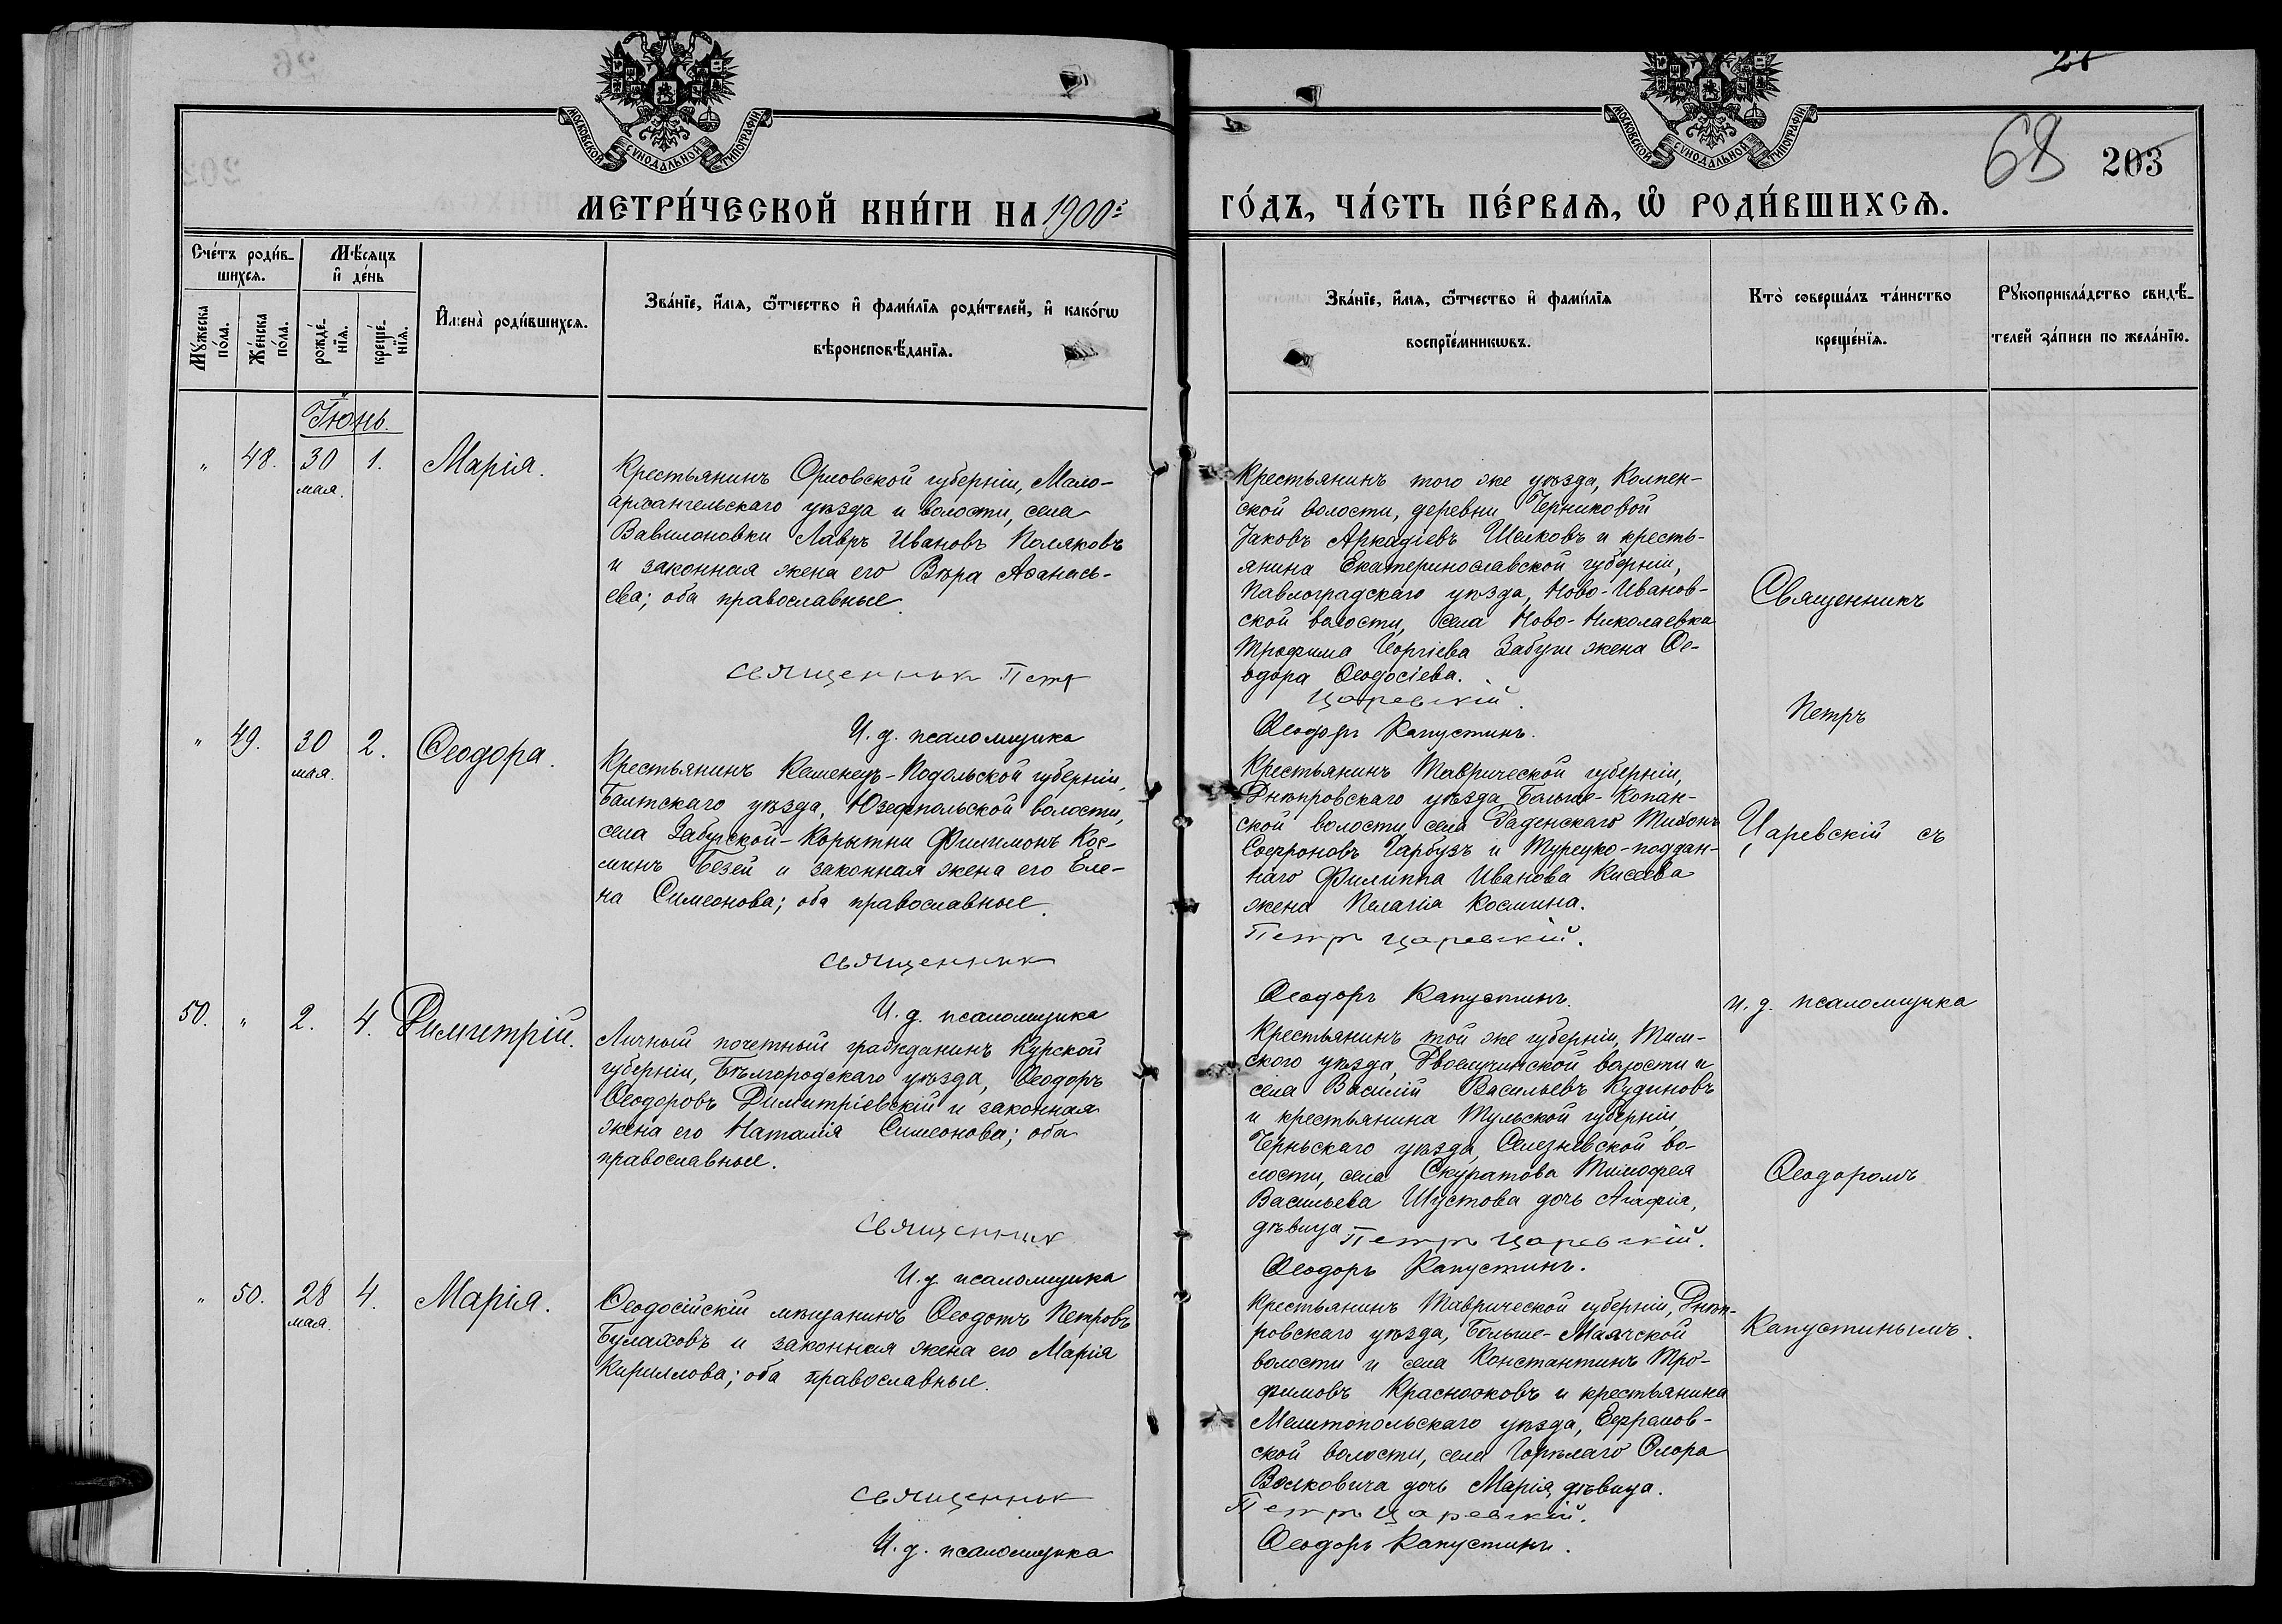 26
27
МОСКОВСКОЙ СѴНОДАЛЬНОЙ ТИПОГРАФІИ
МОСКОВСКОЙ СѴНОДАЛЬНОЙ ТИПОГРАФІИ
68 203
МЕТРИ́ЧЕСКОЙ КНИ́ГИ НА 1900й
ГО́ДЪ, ЧА́СТЬ ПЕ́РВАѦ, Ѡ҆ РОДИ́ВШИХСѦ.
Сче́тъ роди́в-
шихсѧ.
Мѣ́сѧцъ
и҆ де́нь
Мꙋ́жеска
по́ла.
Же́нска
по́ла.
рожде́-
нїѧ.
креще́-
нїѧ.
И҆мена̀ роди́вшихсѧ.
Зва́нїе, и҆́мѧ, ѻ҆́тчество и҆ фами́лїѧ роди́телей, и҆ како́гѡ
вѣроисповѣ́данїѧ.
Зва́нїе, и҆́мѧ, ѻ҆́тчество и҆ фами́лїѧ
воспрїе́мникѡвъ.
Кто̀ соверша́лъ та́инство
креще́нїѧ.
Рꙋкоприкла́дство свидѣ́-
телей за́писи по жела́нїю.
Іюнь.
" 48. 30 1. Марія.
мая.
Крестьянинъ Орловской губерніи, Мало-
архангельскаго уѣзда и волости, села
Вавилоновки Лавръ Ивановъ Поляковъ
и законная жена его Вѣра Аѳанась-
ева; оба православные.
Священникъ Петръ
И. д. псаломщика
Крестьянинъ того же уѣзда, Колпен-
ской волости, деревни Черниковой
Іаковъ Аркадіевъ Шелковъ и кресть-
янина Екатеринославской губерніи,
Павлоградскаго уѣзда, Ново-Иванов-
ской волости, села Ново-Николаевка
Трофима Георгіева Забуги жена Ѳе-
одора Ѳеодосіева.
Царевскій.
Ѳеодоръ Капустинъ.
Священникъ
Петръ
Царевскій съ
и. д. псаломщика
Ѳеодоромъ
Капустинымъ.
" 49. 30 2. Ѳеодора.
мая.
Крестьянинъ Каменецъ-Подольской губерніи,
Балтскаго уѣзда, Юзефпольской волости,
села Забугской-Корытни Филимонъ Кос-
минъ Безей и законная жена его Еле-
на Симеонова; оба православные.
Священникъ
И. д. псаломщика
Крестьянинъ Таврической губерніи,
Днѣпровскаго уѣзда Больше-Копан-
ской волости села Раденскаго Тихонъ
Софроновъ Гарбузъ и Турецко-поддан-
наго Филиппа Иванова Кисеева
жена Пелагія Космина.
Петръ Царевскій.
Ѳеодоръ Капустинъ.
50. " 2. 4. Димитрій.
Личный почетный гражданинъ Курской
губерніи, Бѣлгородскаго уѣзда, Ѳеодоръ
Ѳеодоровъ Димитріевскій и законная
жена его Наталія Симеонова; оба
православные.
Священникъ
И. д. псаломщика
Крестьянинъ той же губерніи, Тим-
ского уѣзда, Двоелучинской волости и
села Василій Васильевъ Кудиновъ
и крестьянина Тульской губерніи,
Черньскаго уѣзда, Селезневской во-
лости, села Скуратова Тимофея
Васильева Шустова дочь Агафія,
дѣвица Петръ Царевскій.
Ѳеодоръ Капустинъ.
" 50. 28 4. Марія.
мая.
Ѳеодосійскій мѣщанинъ Ѳеодотъ Петровъ
Булаховъ и законная жена его Марія
Кириллова; оба православные.
Священникъ
И. д. псаломщика
Крестьянинъ Таврической губерніи, Днѣп-
ровскаго уѣзда, Больше-Маячской
волости и села Константинъ Тро-
фимовъ Краснооковъ и крестьянина
Мелитопольскаго уѣзда, Ефремов-
ской волости, села Горѣлаго Флора
Волковича дочь Марія дѣвица.
Петръ Царевскій.
Ѳеодоръ Капустинъ.